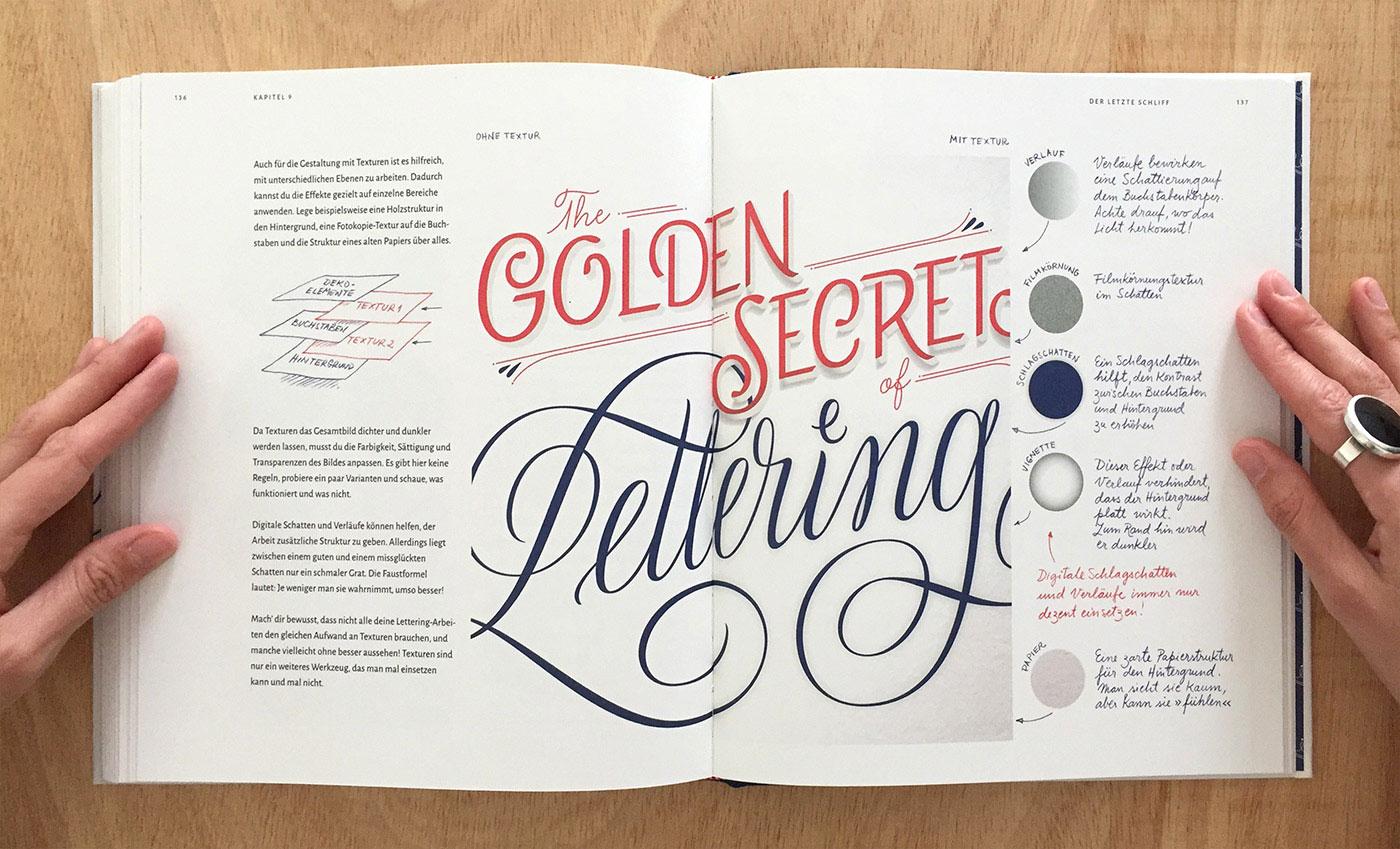 136
KAPITEL 9
OHNE TEXTUR
Auch für die Gestaltung mit Texturen ist es hilfreich,
mit unterschiedlichen Ebenen zu arbeiten. Dadurch
kannst du die Effekte gezielt auf einzelne Bereiche
anwenden. Lege beispielsweise eine Holzstruktur in
den Hintergrund, eine Fotokopie-Textur auf die Buch-
staben und die Struktur eines alten Papiers über alles.
DEKO-
ELEMENTE
TEXTUR 1
BUCHSTABEN
TEXTUR 2
HINTERGRUND
Da Texturen das Gesamtbild dichter und dunkler
werden lassen, musst du die Farbigkeit, Sättigung und
Transparenzen des Bildes anpassen. Es gibt hier keine
Regeln, probiere ein paar Varianten und schaue, was
funktioniert und was nicht.
Digitale Schatten und Verläufe können helfen, der
Arbeit zusätzliche Struktur zu geben. Allerdings liegt
zwischen einem guten und einem missglückten
Schatten nur ein schmaler Grat. Die Faustformel
lautet: Je weniger man sie wahrnimmt, umso besser!
Mach' dir bewusst, dass nicht alle deine Lettering-Arbei-
ten den gleichen Aufwand an Texturen brauchen, und
manche vielleicht ohne besser aussehen! Texturen sind
nur ein weiteres Werkzeug, das man mal einsetzen
kann und mal nicht.
The
GOLDEN
SECRETS
of
Lettering
DER LETZTE SCHLIFF
137
MIT TEXTUR
VERLAUF
Verläufe bewirken
eine Schattierung auf
dem Buchstabenkörper.
Achte drauf, wo das
Licht herkommt!
FILMKÖRNUNG
Filmkörnungstextur
im Schatten
SCHLAGSCHATTEN
Ein Schlagschatten
hilft, den Kontrast
zwischen Buchstaben
und Hintergrund
zu erhöhen
VIGNETTE
Dieser Effekt oder
Verlauf verhindert,
dass der Hintergrund
platt wirkt.
Zum Rand hin wird
er dunkler
Digitale Schlagschatten
und Verläufe immer nur
dezent einsetzen!
PAPIER
Eine zarte Papierstruktur
für den Hintergrund.
Man sieht sie kaum,
aber kann sie »fühlen«